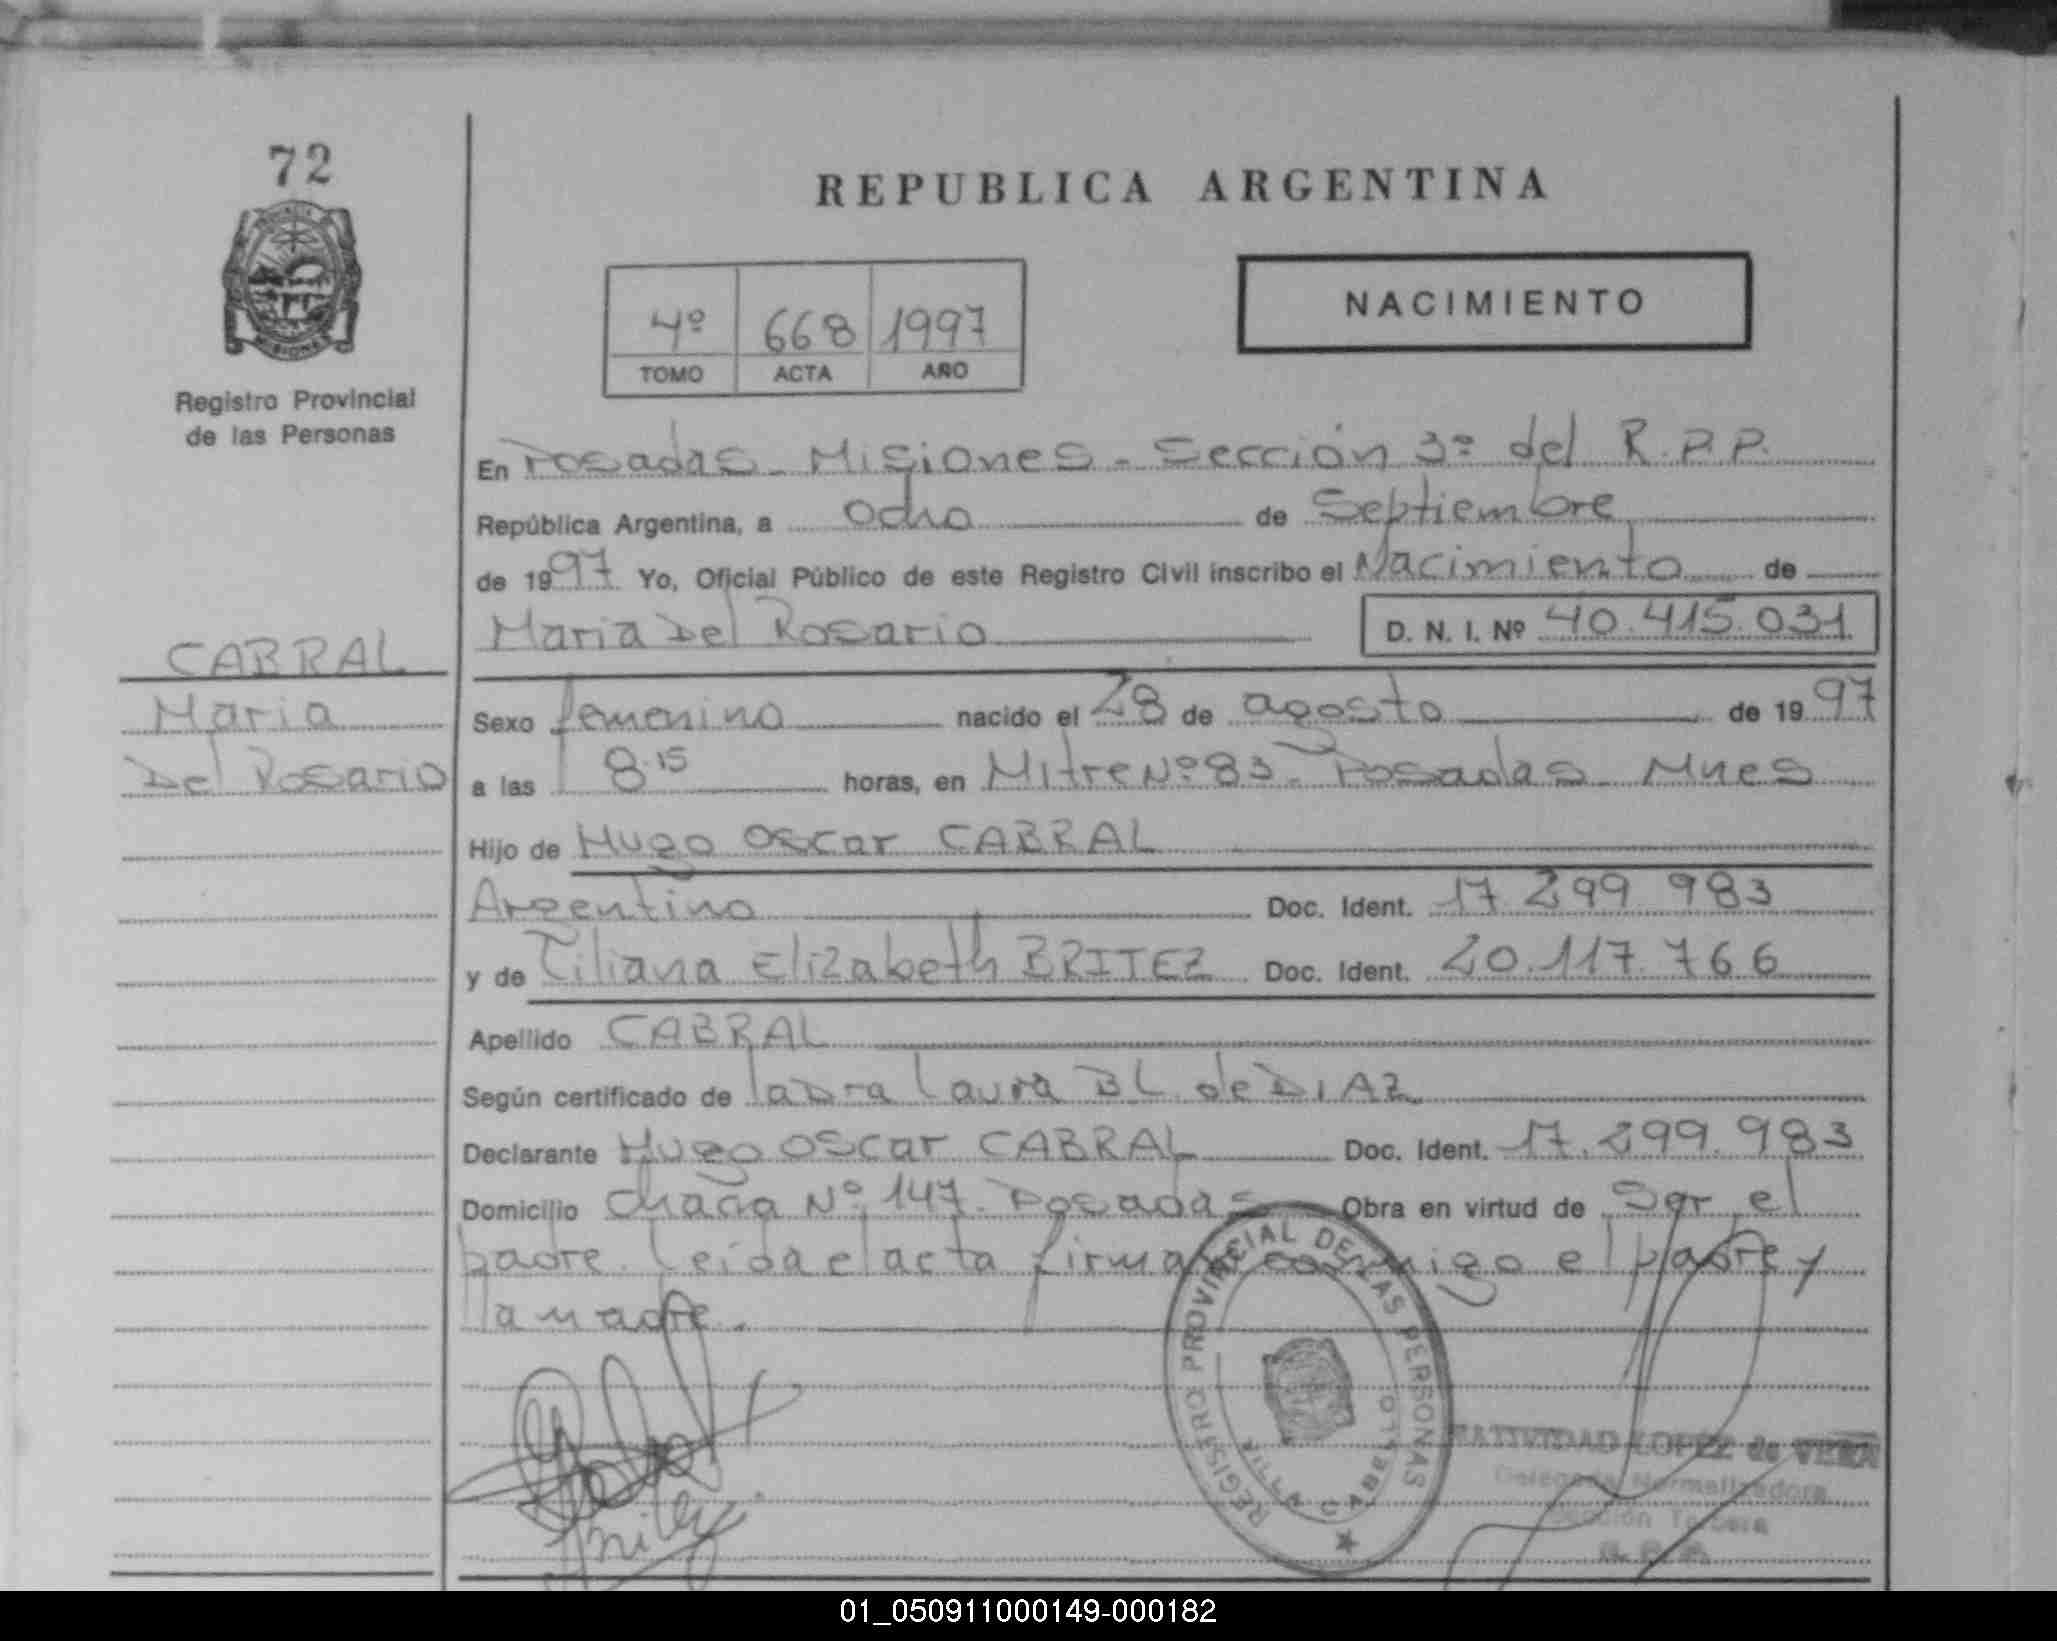 72
REPUBLICA ARGENTINA
MISIONES
Registro Provincial
de las Personas
4º 668 1997
TOMO ACTA AÑO
NACIMIENTO
En Posadas - Misiones - Sección 3º del R.P.P.
República Argentina, a Ocho de Septiembre
de 1997 Yo, Oficial Público de este Registro Civil inscribo el Nacimiento de
Maria Del Rosario D. N. I. Nº 40.415.031
CABRAL
Maria
Del Rosario
Sexo femenino nacido el 28 de agosto de 1997
a las 8.15 horas, en Mitre Nº 83 - Posadas Mnes
Hijo de Hugo Oscar CABRAL
Argentino Doc. Ident. 17.299.983
y de Liliana Elizabeth BRITEZ Doc. Ident. 20.117.766
Apellido CABRAL
Según certificado de la Dra Laura B L. de DIAZ
Declarante Hugo Oscar CABRAL Doc. Ident. 17.299.983
Domicilio Chacra Nº 147. Posadas Obra en virtud de Ser el
padre. Leida el acta firman conmigo el padre y
la madre.
REGISTRO PROVINCIAL DE LAS PERSONAS
VILLA CABELLO
NATIVIDAD LOPEZ de VERA
Delegada Normalizadora
Sección Tercera
R. P. P.
01_050911000149-000182